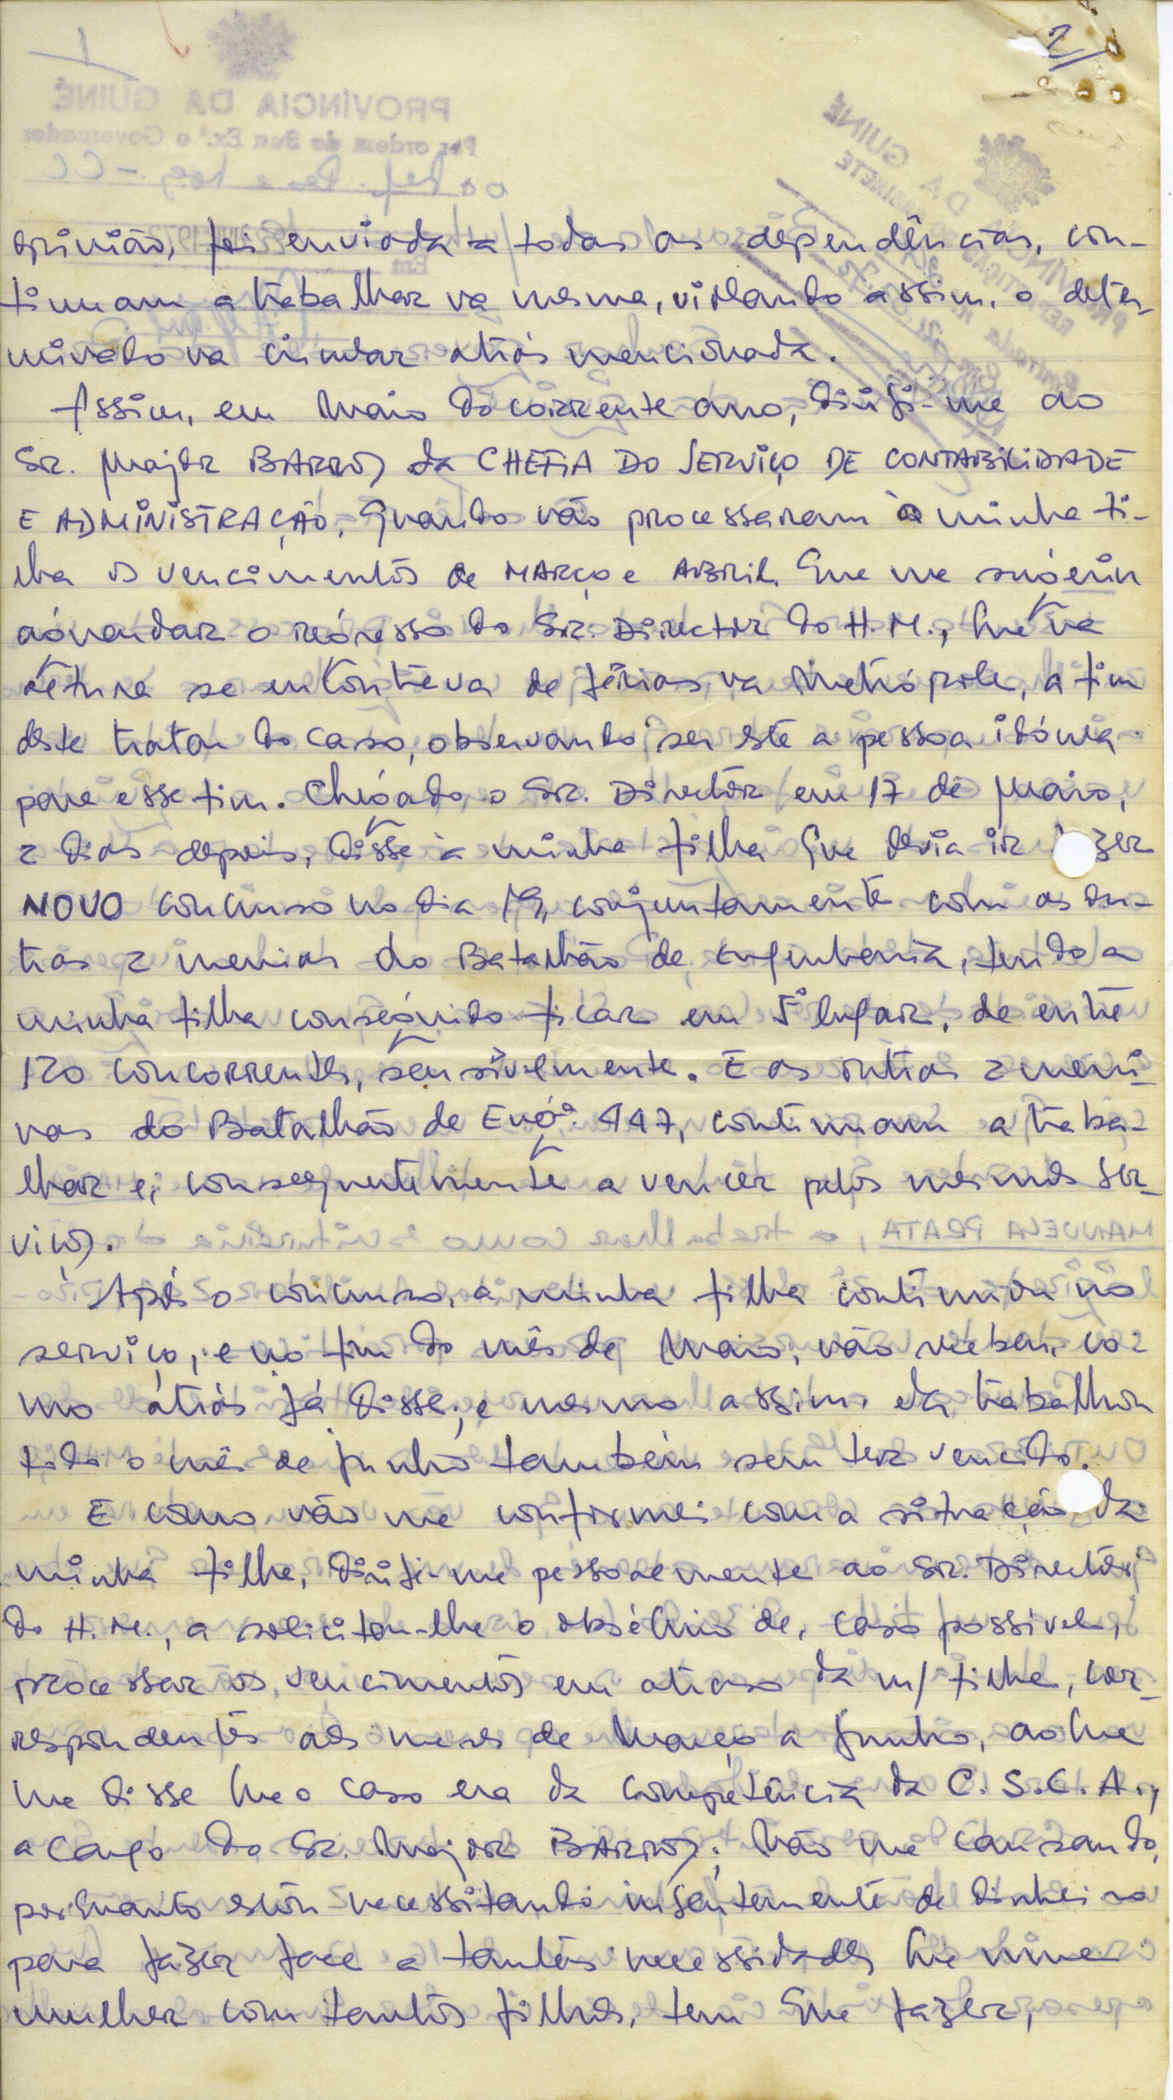 2
opinião, foi enviada a todas as dependências, con-
tinuam a trabalhar na mesma, violando assim, o deter-
minado na circular atrás mencionada.
Assim, em Maio do corrente ano, dirigi-me ao
Sr. Major BARROS da CHEFIA DO SERVIÇO DE CONTABILIDADE
E ADMINISTRAÇÃO, quando não processaram à minha fi-
lha os vencimentos de MARÇO e ABRIL que me sugeriu
aguardar o regresso do Sr. Director do H.M., que na
altura se encontrava de férias na Metrópole, a fim
deste tratar do caso, observando ser este a pessoa idónia
para esse fim. Chegado o Sr. Director em 17 de Maio,
2 dias depois, disse à minha filha que devia ir zer
NOVO concurso no dia 19, conjuntamente com as ou-
tras 2 meninas do Batalhão de Engenharia, tendo a
minha filha conseguido ficar em 5º lugar, de entre
120 concorrentes, sensivelmente. E as outras 2 meni-
nas do Batalhão de Engª. 447, continuam a traba-
lhar e, consequentemente a vencer pelos mesmos ser-
viços.
Após o concurso, a minha filha continuou no
serviço, e no fim do mês de Maio, não recebeu, co-
mo atrás já disse, e mesmo assim, ela trabalhou
todo o mês de Junho também sem ter vencido.
E como não me conformei com a situação da
minha filha, dirigi-me pessoalmente ao Sr. Director
do H.M., a solicitou-lhe o obséquio de, caso possivel,
processar os vencimentos em atraso da m/ filha, cor-
respondentes aos meses de Março a Junho, ao que
me disse que o caso era da competência da C.S.C.A.,
a cargo do Sr. Major BARROS. Não me cansando,
porquanto estou necessitando urgentemente de dinheiro
para fazer face a tantas necessidades que uma
mulher com tantos filhos, tem que fazer,